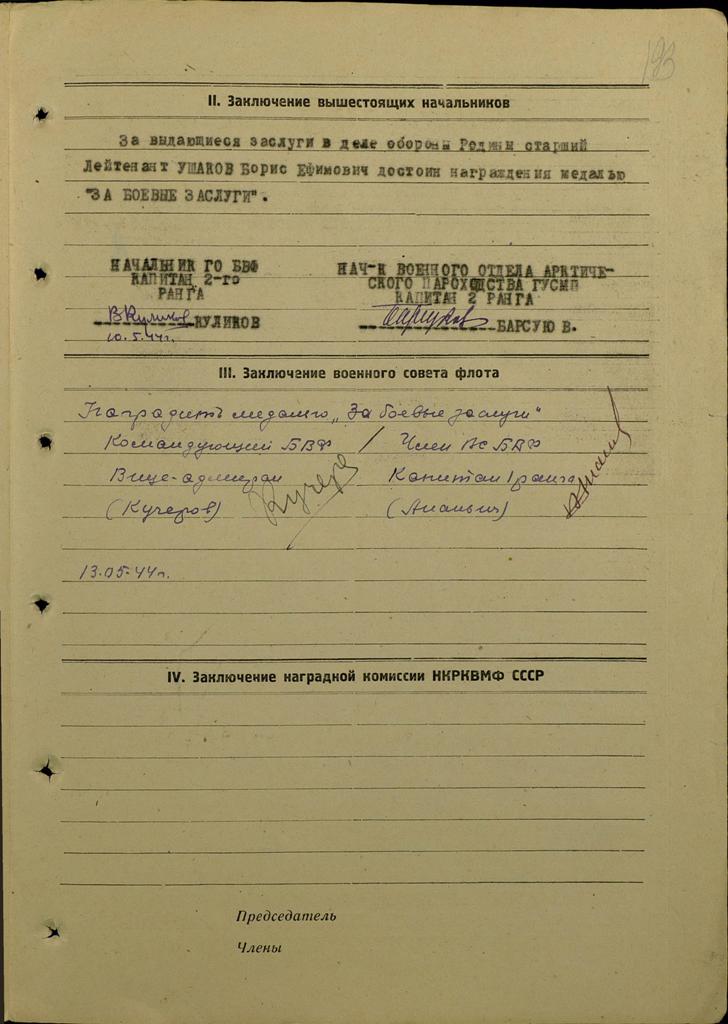 193
II. Заключение вышестоящих начальников
За выдающиеся заслуги в деле обороны Родины старший
Лейтенант УШАКОВ Борис Ефимович достоин награждения медалью
"ЗА БОЕВЫЕ ЗАСЛУГИ".
НАЧАЛЬНИК ГО БВФ
КАПИТАН 2-го
РАНГА
ВКуликов КУЛИКОВ
10.5.44г.
НАЧ-К ВОЕННОГО ОТДЕЛА АРКТИЧЕ-
СКОГО ПАРОХОДСТВА ГУСМП
КАПИТАН 2 РАНГА
БАРСУЮ В.
III. Заключение военного совета флота
Наградить медалью „За боевые заслуги"
Командующий БВФ / Член ВС БВФ
Вице-адмирал Капитан 1 ранга
(Кучеров) Кучеров
13.05.44г.
IV. Заключение наградной комиссии НКРКВМФ СССР
Председатель
Члены